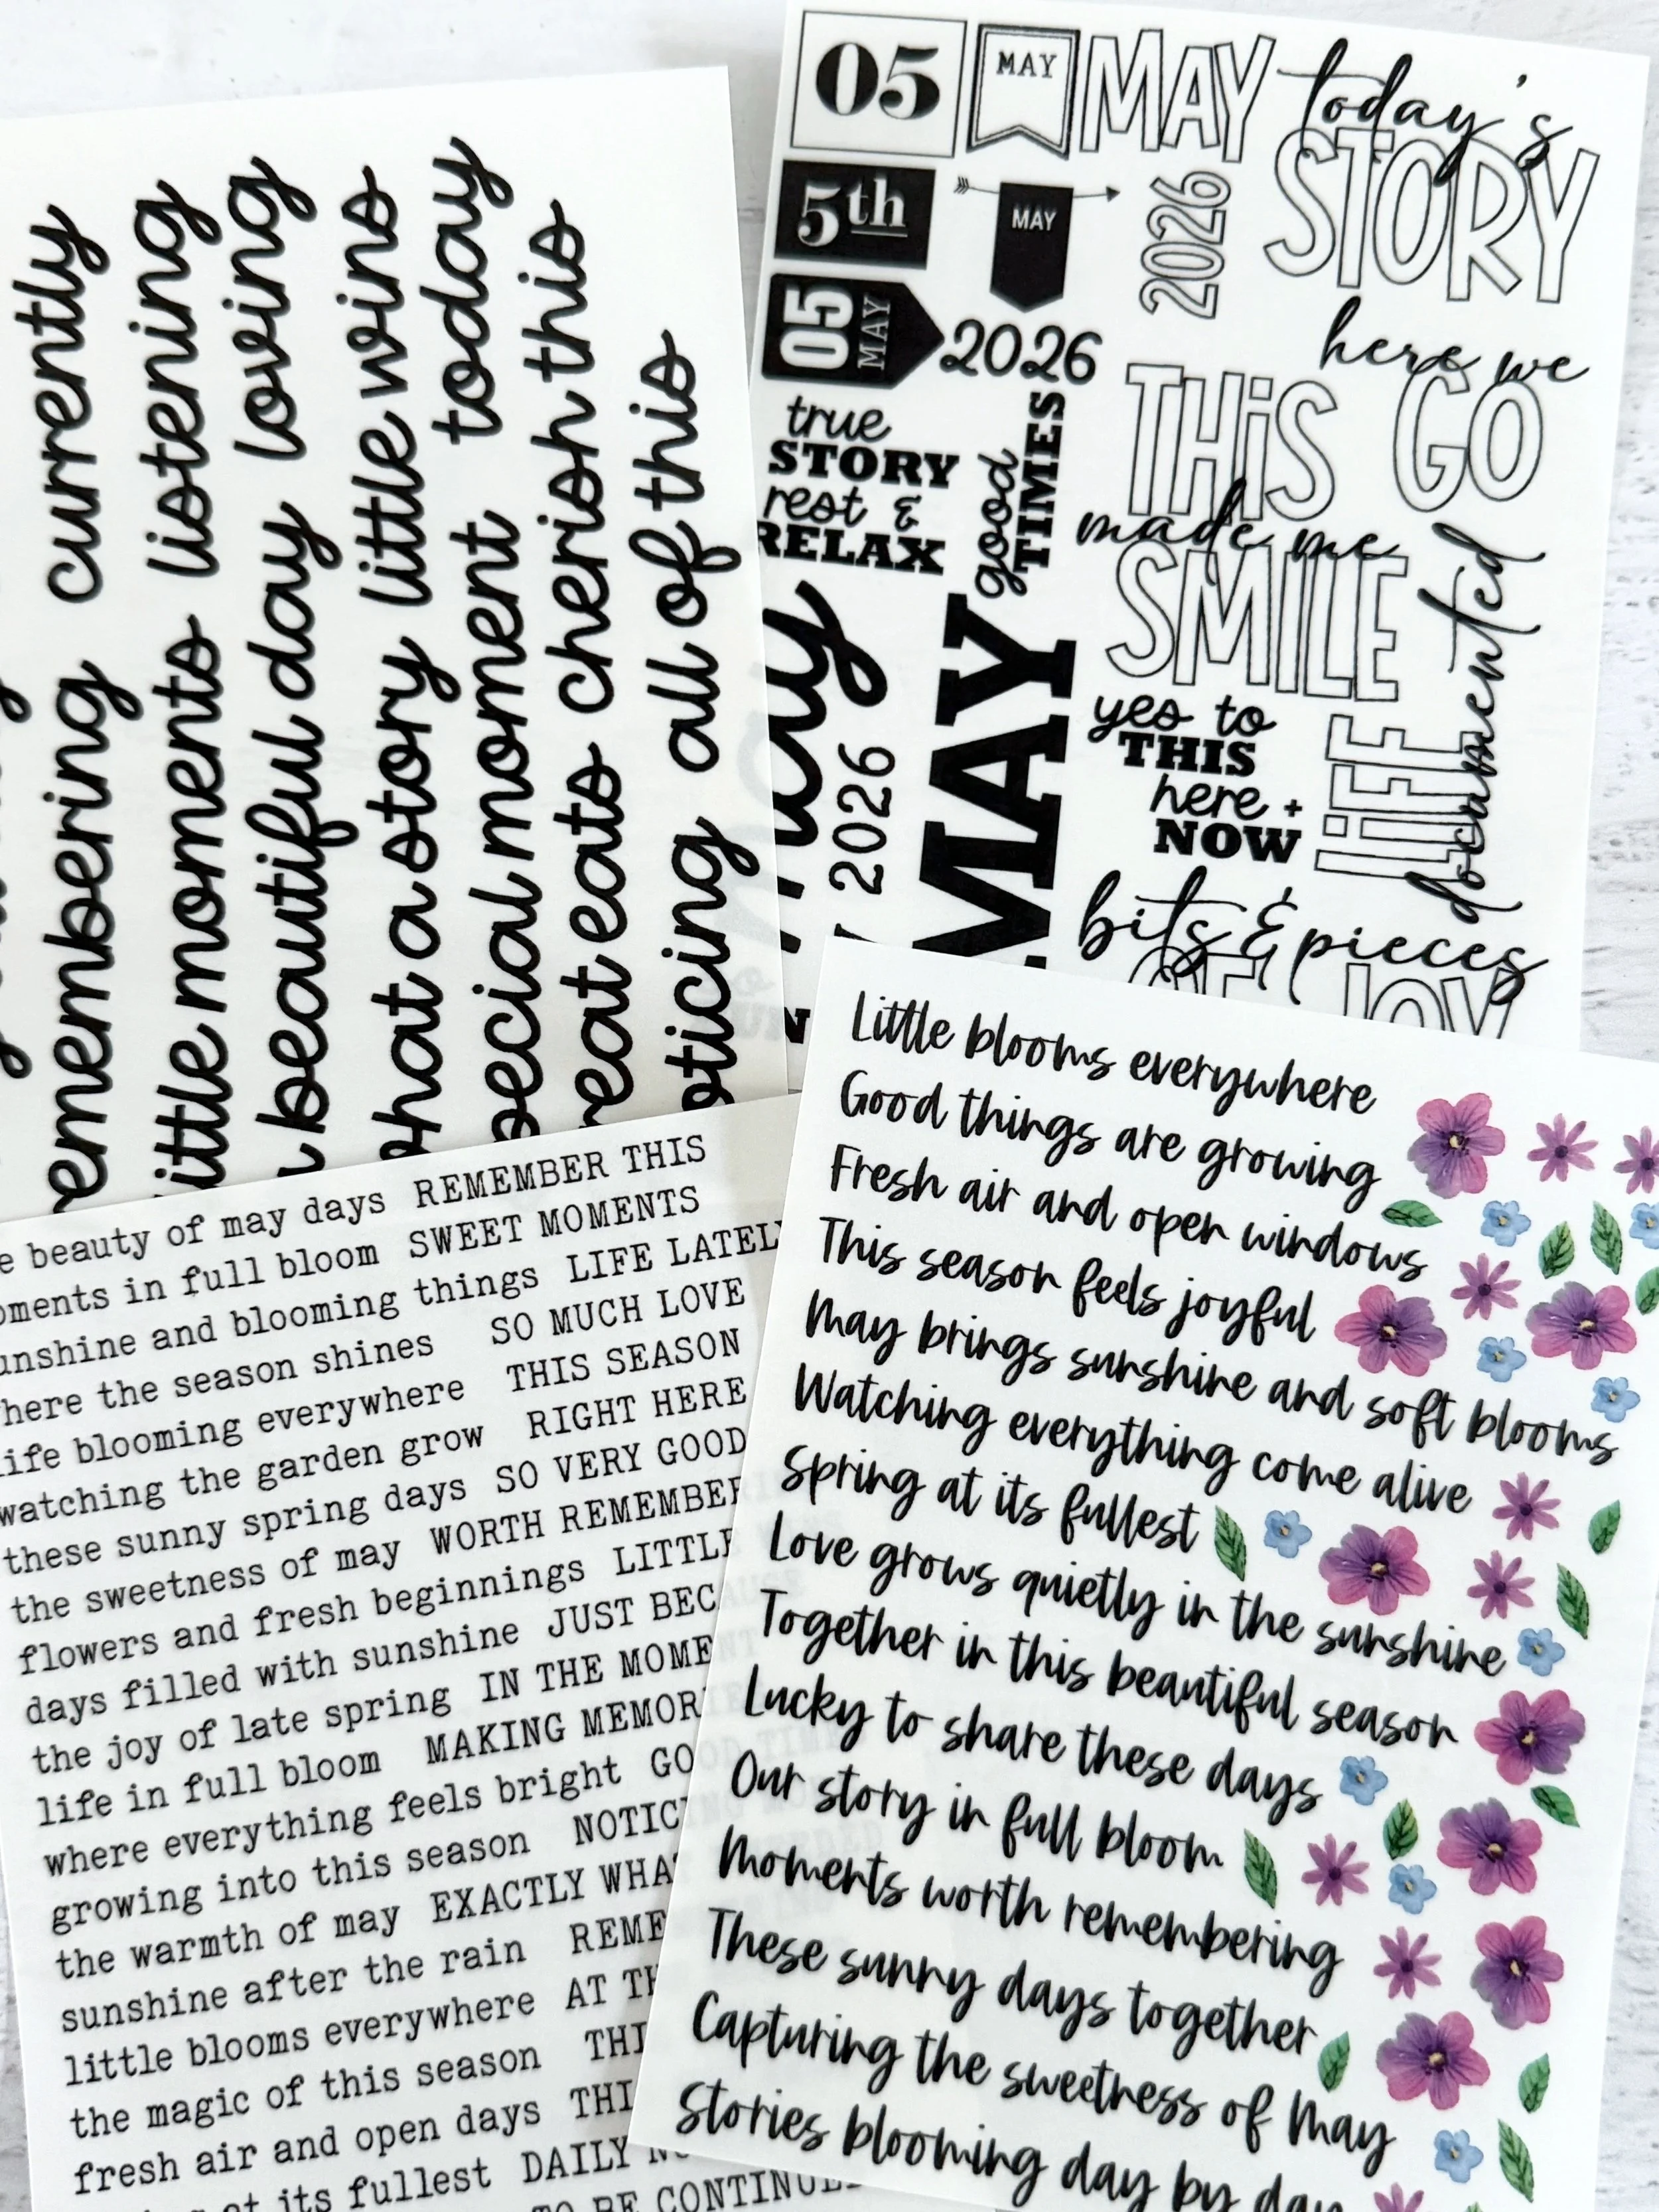 currently
remembering
little moments listening
beautiful day loving
what a story little wins
special moment today
great eats cherish this
noticing all of this
05
MAY
MAY
today's
STORY
5th
MAY
2026
05
MAY
2026
here we
GO
THiS
made me
SMILE
true
STORY
rest &
RELAX
good
TIMES
may
2026
MAY
yes to
THIS
here +
NOW
LiFE
documented
bits & pieces
OF JOY
beauty of may days REMEMBER THIS
moments in full bloom SWEET MOMENTS
sunshine and blooming things LIFE LATELY
where the season shines SO MUCH LOVE
life blooming everywhere THIS SEASON
watching the garden grow RIGHT HERE
these sunny spring days SO VERY GOOD
the sweetness of may WORTH REMEMBER
flowers and fresh beginnings LITTLE
days filled with sunshine JUST BECAUSE
the joy of late spring IN THE MOMENT
life in full bloom MAKING MEMORI
where everything feels bright GOOD TIMES
growing into this season NOTIC
the warmth of may EXACTLY WHAT
sunshine after the rain REME
little blooms everywhere AT TH
the magic of this season THI
fresh air and open days THI
at its fullest DAILY
TO BE CONTINUED
Little blooms everywhere
Good things are growing
Fresh air and open windows
This season feels joyful
May brings sunshine and soft blooms
Watching everything come alive
Spring at its fullest
Love grows quietly in the sunshine
Together in this beautiful season
Lucky to share these days
Our story in full bloom
Moments worth remembering
These sunny days together
Capturing the sweetness of May
Stories blooming day by day